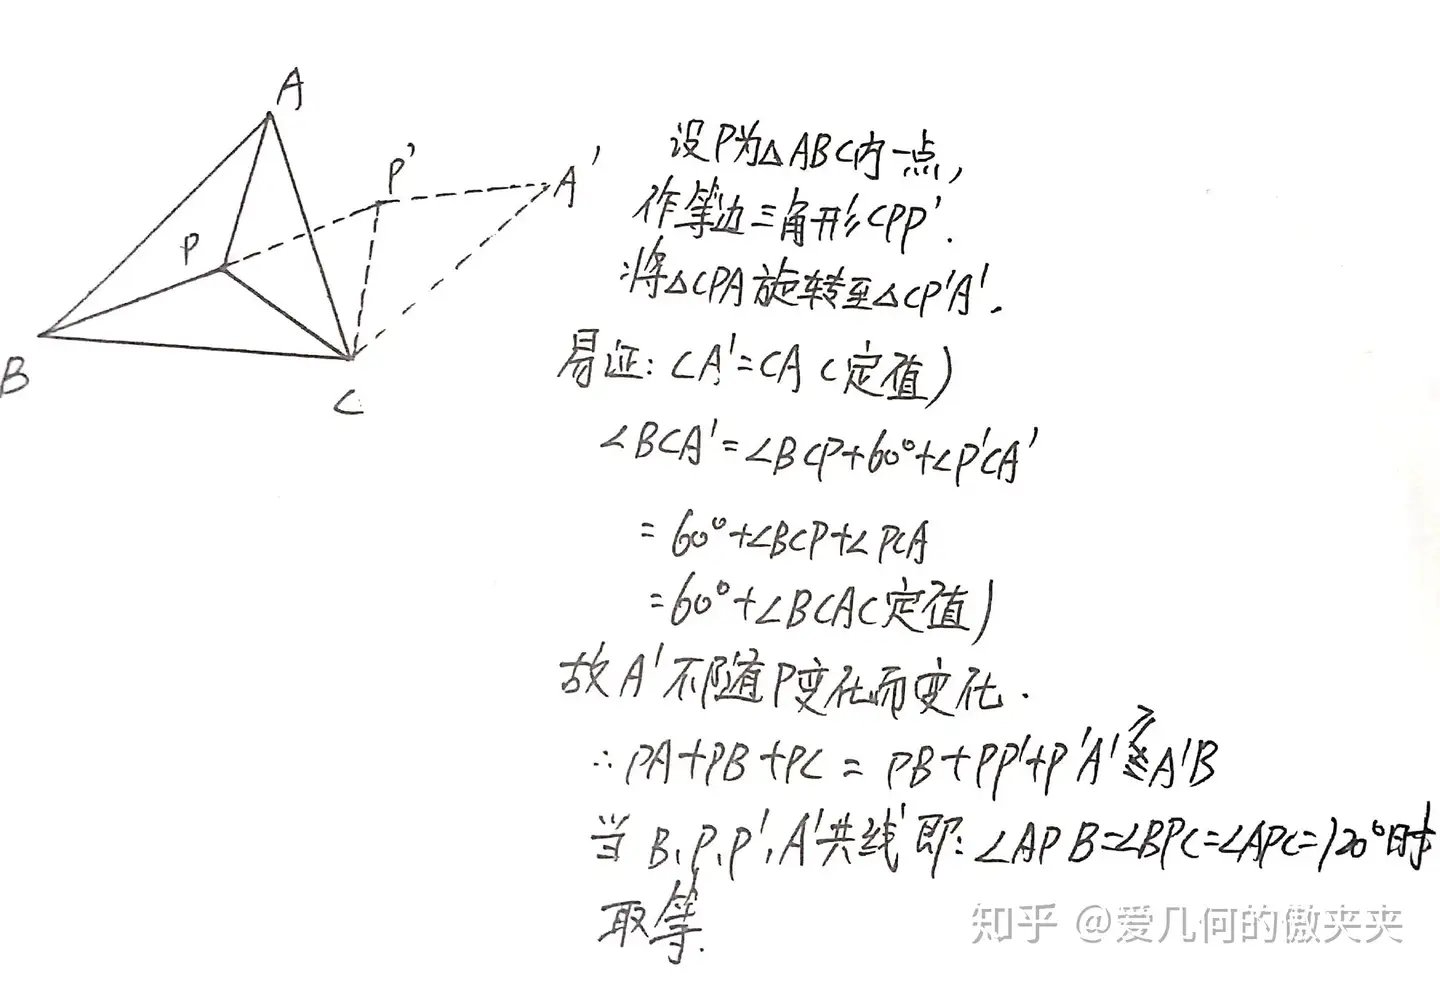 A
P'
A'
P
B
C
设P为△ABC内一点,
作等边三角形CPP'.
将△CPA旋转至△CP'A'.
易证: CA'=CA (定值)
∠BCA'=∠BCP+60°+∠P'CA'
=60°+∠BCP+∠PCA
=60°+∠BCA(定值)
故A'不随P变化而变化.
∴PA+PB+PC=PB+PP'+P'A'≥A'B
当B、P、P'、A'共线 即:∠APB=∠BPC=∠APC=120°时
取等.
知乎 @爱几何的傲夹夹